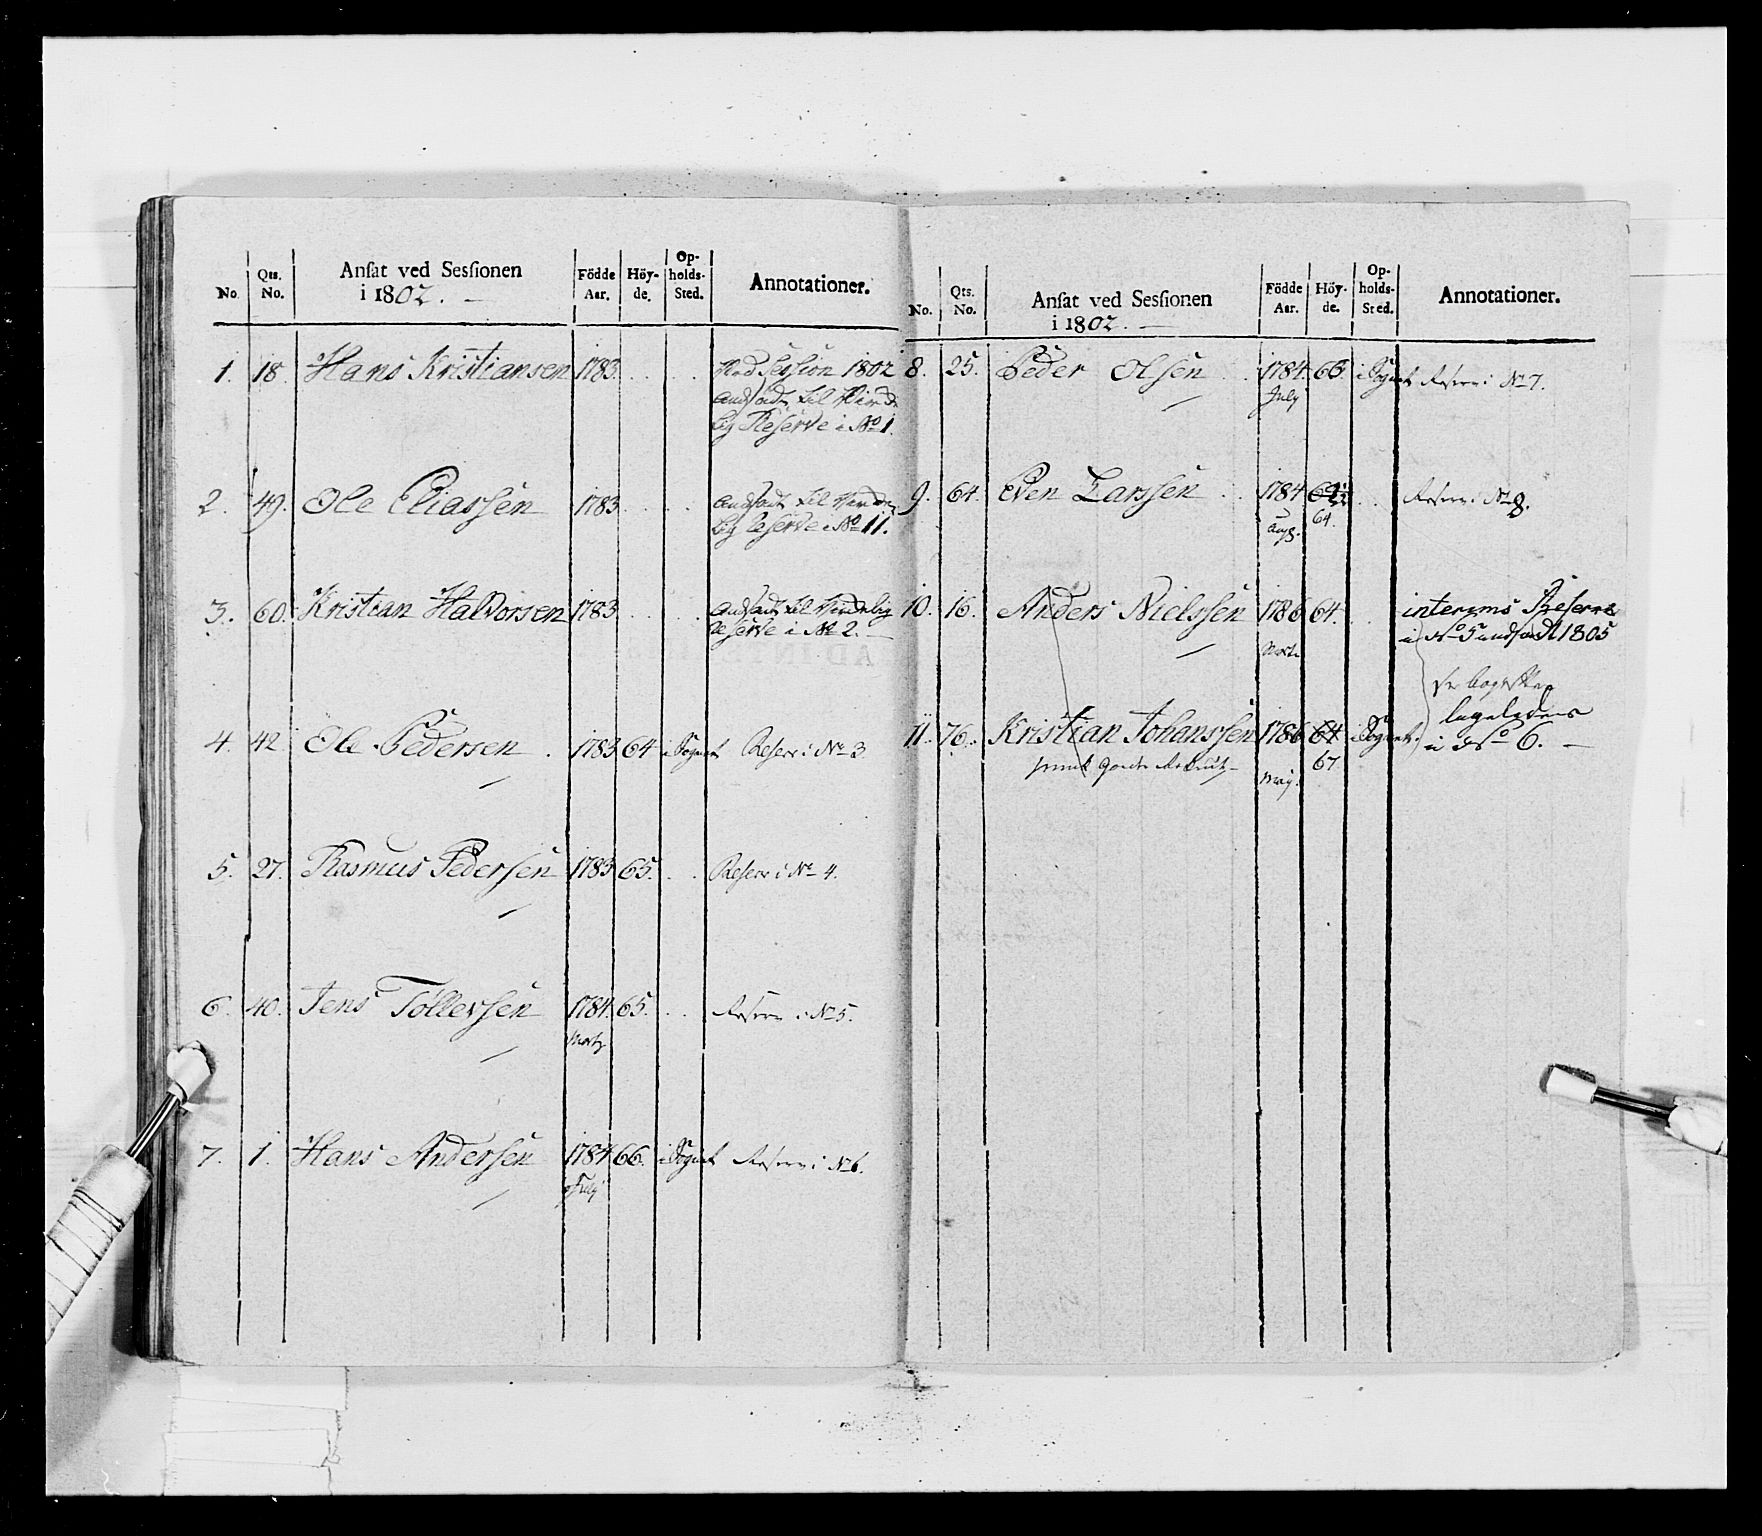 No. Qts. No. Ansat ved Sessionen i 1802. Födde Aar. Höyde. Opholds-Sted. Annotationer.
1. 18. Hans Kristiansen 1783. . . Ved Session 1802
Andsadt til Virke-
lig Reserve i No 1.
2. 49. Ole Eliassen 1783 . . Andsadt til
lig reserve i No 11.
3. 60. Kristian Haldorsen 1783 . . andsadt til
reserve i No 2.
4. 42 Ole Pedersen . 1783 64 i Sognet Reserv i No 3
5. 27. Rasmus Pedersen 1783 65. . . Reserv i No 4.
6. 40. Jens Tollevsen 1784. 65. . . Reserv i No 5.
Martz
7. 1. Hans Andersen 1784 66. i Sognet Reserv i No 6.
July
No. Qts. No. Ansat ved Sessionen i 1802. Födde Aar. Höyde. Opholds-Sted. Annotationer.
8. 25. Peder Olsen . . 1784. 66. i Sognet Reserv i No 7.
July
9. 64. Even Larssen . . 1784 . . Reserv i No 8.
Aug. 64.
10. 16. Anders Nielssen 1786 64. . . interims Reserve
i No 5 andsadt 1805
11. 76. Kristian Johanssen 1786 64 i Sognet.
ligeledens
i No 6.
May. 67